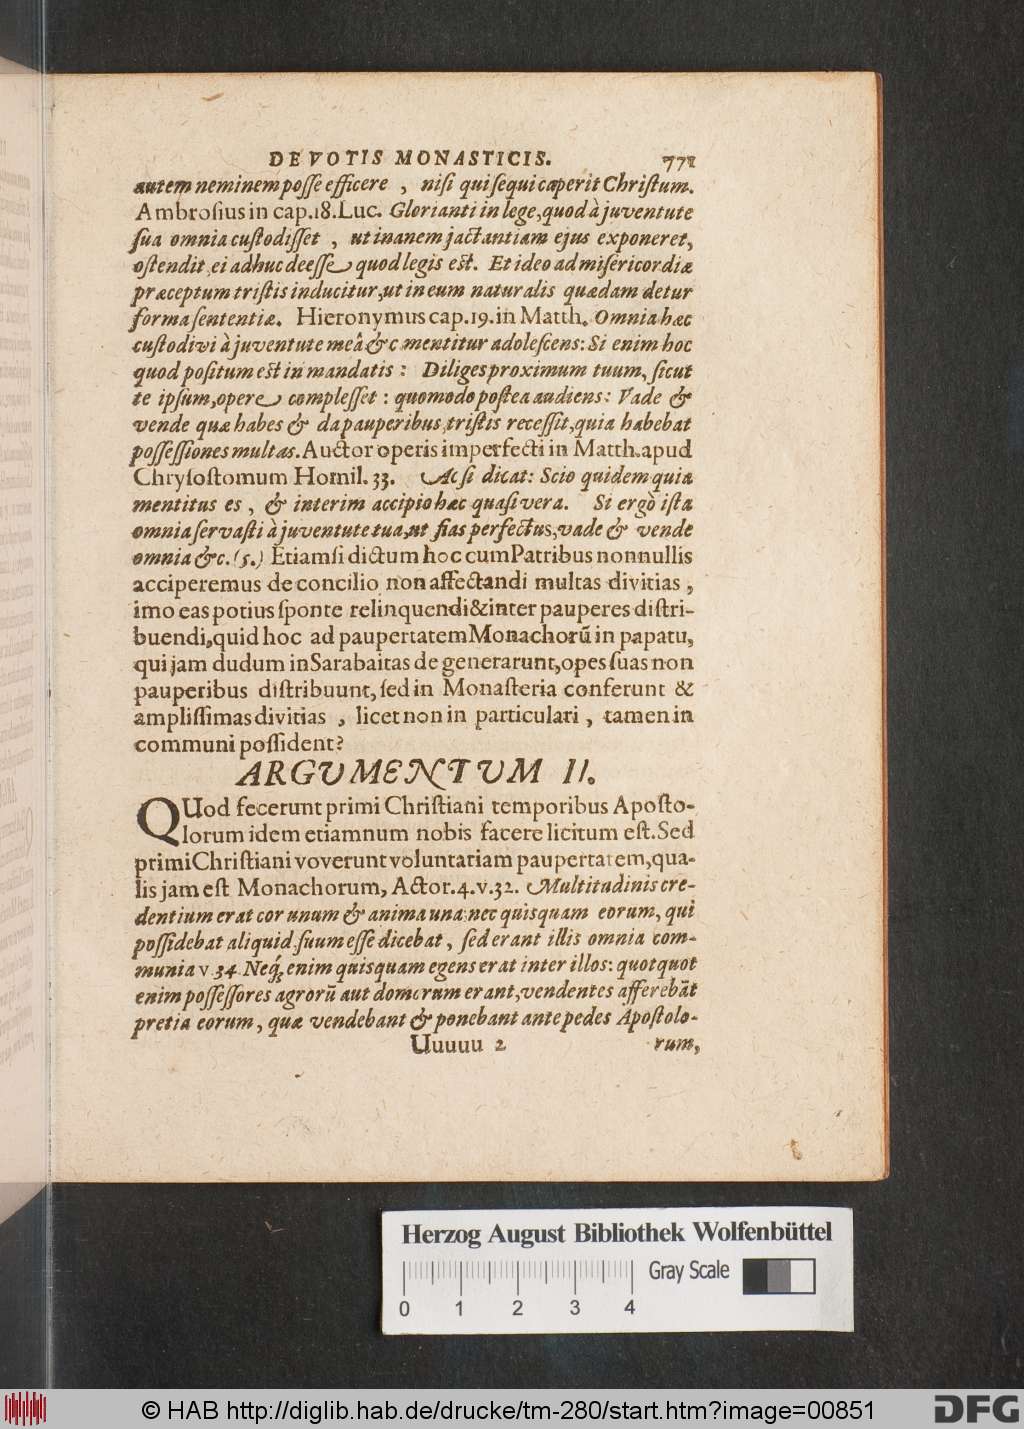 DE VOTIS MONASTICIS. 771
autem neminem posse efficere , nisi qui sequi cœperit Christum.
Ambrosius in cap.18.Luc. Glorianti in lege,quod à juventute
sua omnia custodisset , ut inanem jactantiam ejus exponeret,
ostendit ei adhuc deesse quod legis est. Et ideo ad misericordiæ
præceptum tristis inducitur,ut in eum naturalis quædam detur
forma sententiæ. Hieronymus cap.19.in Matth. Omnia hæc
custodivi à juventute meâ &c mentitur adolescens: Si enim hoc
quod positum est in mandatis : Diliges proximum tuum, sicut
te ipsum,opere complesset : quomodo postea audiens: Vade &
vende quæ habes & da pauperibus,tristis recessit,quia habebat
possessiones multas. Auctor operis imperfecti in Matth.apud
Chrysostomum Homil. 33. Ac si dicat: Scio quidem quia
mentitus es , & interim accipio hæc quasi vera. Si ergò ista
omnia servasti à juventute tua,ut fias perfectus,vade & vende
omnia &c. (5.) Etiamsi dictum hoc cum Patribus nonnullis
acciperemus de concilio non affectandi multas divitias ,
imo eas potius sponte relinquendi & inter pauperes distri-
buendi,quid hoc ad paupertatem Monachorū in papatu,
qui jam dudum in Sarabaitas de generarunt,opes suas non
pauperibus distribuunt, sed in Monasteria conferunt &
amplissimas divitias , licet non in particulari , tamen in
communi possident?
ARGUMENTUM II.
QUod fecerunt primi Christiani temporibus Aposto-
lorum idem etiamnum nobis facere licitum est. Sed
primi Christiani voverunt voluntariam paupertatem,qua-
lis jam est Monachorum, Actor.4.v.32. Multitudinis cre-
dentium erat cor unum & anima una: nec quisquam eorum, qui
possidebat aliquid suum esse dicebat , sed erant illis omnia com-
munia v.34. Neq; enim quisquam egens erat inter illos: quotquot
enim possessores agrorū aut domorum erant,vendentes afferebāt
pretia eorum, quæ vendebant & ponebant ante pedes Apostolo-
Uuuuu 2 rum,
Herzog August Bibliothek Wolfenbüttel
Gray Scale
0 1 2 3 4
© HAB http://diglib.hab.de/drucke/tm-280/start.htm?image=00851
DFG